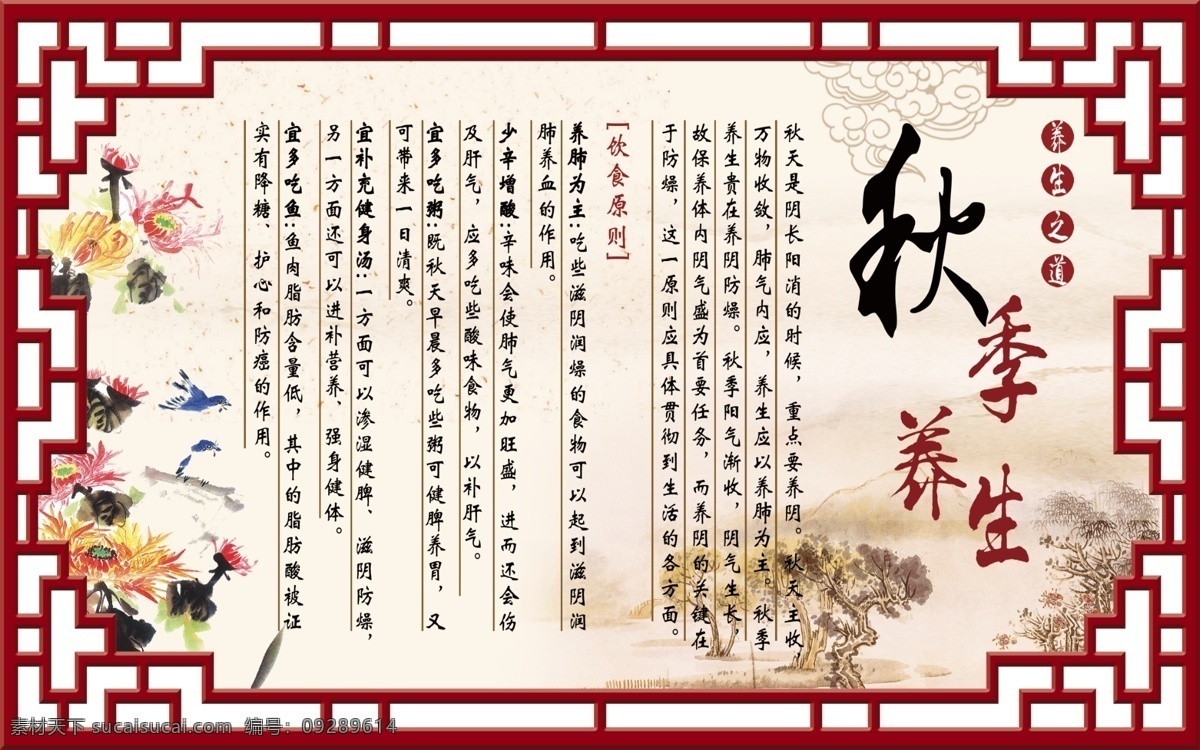 养生之道
秋季养生
秋天是阴长阳消的时候，重点要养阴。秋天主收，
万物收敛，肺气内应，养生应以养肺为主。秋季
养生贵在养阴防燥。秋季阳气渐收，阴气生长，
故保养体内阴气盛为首要任务，而养阴的关键在
于防燥，这一原则应具体贯彻到生活的各方面。
[饮食原则]
养肺为主：吃些滋阴润燥的食物可以起到滋阴润
肺养血的作用。
少辛增酸：辛味会使肺气更加旺盛，进而还会伤
及肝气，应多吃些酸味食物，以补肝气。
宜多吃粥：既秋天早晨多吃些粥可健脾养胃，又
可带来一日清爽。
宜补充健身汤：一方面可以渗湿健脾、滋阴防燥，
另一方面还可以进补营养、强身健体。
宜多吃鱼：鱼肉脂肪含量低，其中的脂肪酸被证
实有降糖、护心和防癌的作用。
素材天下 sucaisucai.com 编号：09289614